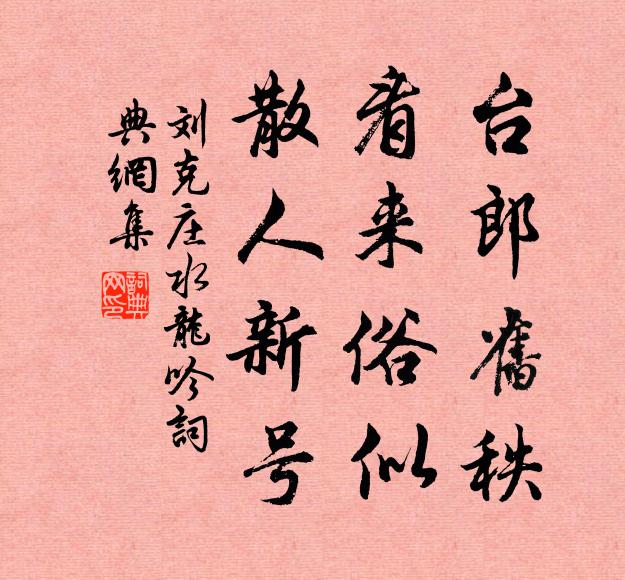 台郎舊秩
看来俗似
散人新号
刘克庄水龍吟詞
典網集
詞典网印